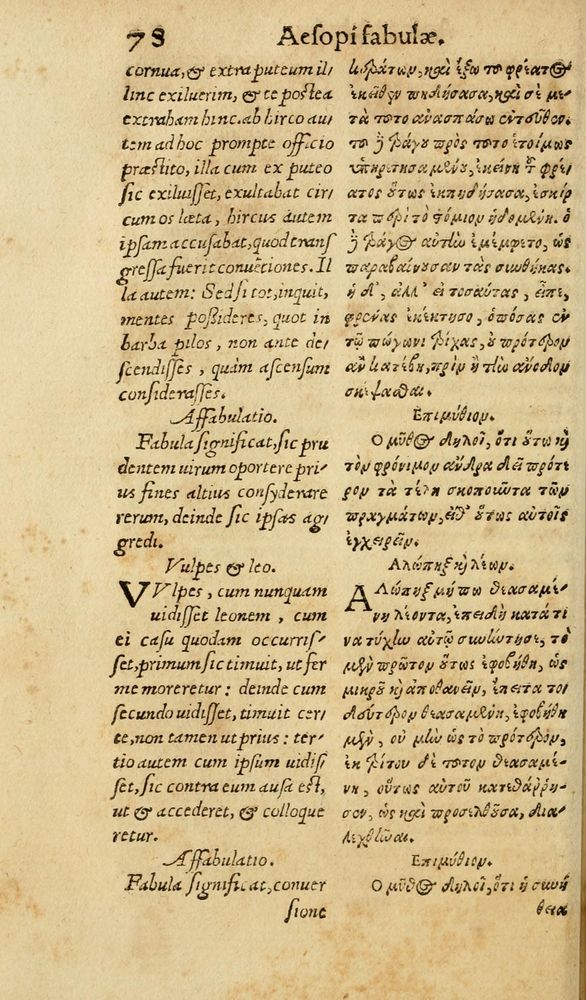 78 Aesopi fabulæ.
cornua, & extra puteum il/
linc exiluerim, & te postea
extraham hinc. ab hirco au/
tem ad hoc prompte officio
præstito, illa cum ex puteo
sic exiluisset, exultabat cir/
cum os læta, hircus autem
ipsam accusabat, quod trans
gressa fuerit conuētiones. Il
la autem: Sed si tot, inquit,
mentes possideres, quot in
barba pilos, non ante de/
scendisses, quàm ascensum
considerasses.
Affabulatio.
Fabula significat, sic pru
dentem uirum oportere pri/
us fines altius consyderare
rerum, deinde sic ipsas ag
gredi.
Vulpes & leo.
VVlpes, cum nunquam
uidisset leonem, cum
ei casu quodam occurris/
set, primum sic timuit, ut fer
me moreretur: deinde cum
secundo uidisset, timuit cer/
te, non tamen ut prius: ter/
tio autem cum ipsum uidis
set, sic contra eum ausa est,
ut & accederet, & colloque
retur.
Affabulatio.
Fabula significat, conuer
sione
κεράτων, καὶ ἔξω τοῦ φρέατος
ἐκεῖθεν πηδήσασα, καὶ σὲ με/
τὰ τοῦτο ἀνασπάσω ἐντεῦθεν.
τοῦ δὲ τράγου πρὸς τοῦτο ἑτοίμως
ὑπηρετησαμένου, ἐκείνη τοῦ φρέ/
ατος οὕτως ἐκπηδήσασα, ἐσκίρ
τα περὶ τὸ στόμιον ἡδομένη. ὁ
δὲ τράγος αὐτὴν ἐμέμφετο, ὡς
παραβαίνουσαν τὰς συνθήκας.
ἡ δ', ἀλλ' εἰ τοσαύτας, εἶπε,
φρένας ἐκέκτησο, ὁπόσας ἐν
τῷ πώγωνι τρίχας, οὐ πρότερον
ἂν κατέβη, πρὶν ἢ τὴν ἄνοδον
σκέψασθαι.
Ἐπιμύθιον.
Ὁ μῦθος δηλοῖ, ὅτι οὕτω καὶ
τὸν φρόνιμον ἄνδρα δεῖ πρότε
ρον τὰ τέλη σκοποῦντα τῶν
πραγμάτων, εἶθ' οὕτως αὐτοῖς
ἐγχειρεῖν.
Ἀλώπηξ καὶ λέων.
Ἀλώπηξ μήπω θεασαμέ/
νη λέοντα, ἐπειδὴ κατά τι
να τύχην αὐτῷ συνήντησε, τὸ
μὲν πρῶτον οὕτως ἐφοβήθη, ὡς
μικροῦ καὶ ἀποθανεῖν, ἔπειτα το
δεύτερον θεασαμένη, ἐφοβήθη
μὲν, οὐ μὴν ὡς τὸ πρότερον,
ἐκ τρίτου δὲ τοῦτον θεασαμέ/
νη, οὕτως αὐτοῦ κατεθάρρη/
σεν, ὡς καὶ προσελθοῦσα, δια/
λεχθῆναι.
Ἐπιμύθιον.
Ὁ μῦθος δηλοῖ, ὅτι ἡ συνή
θεια